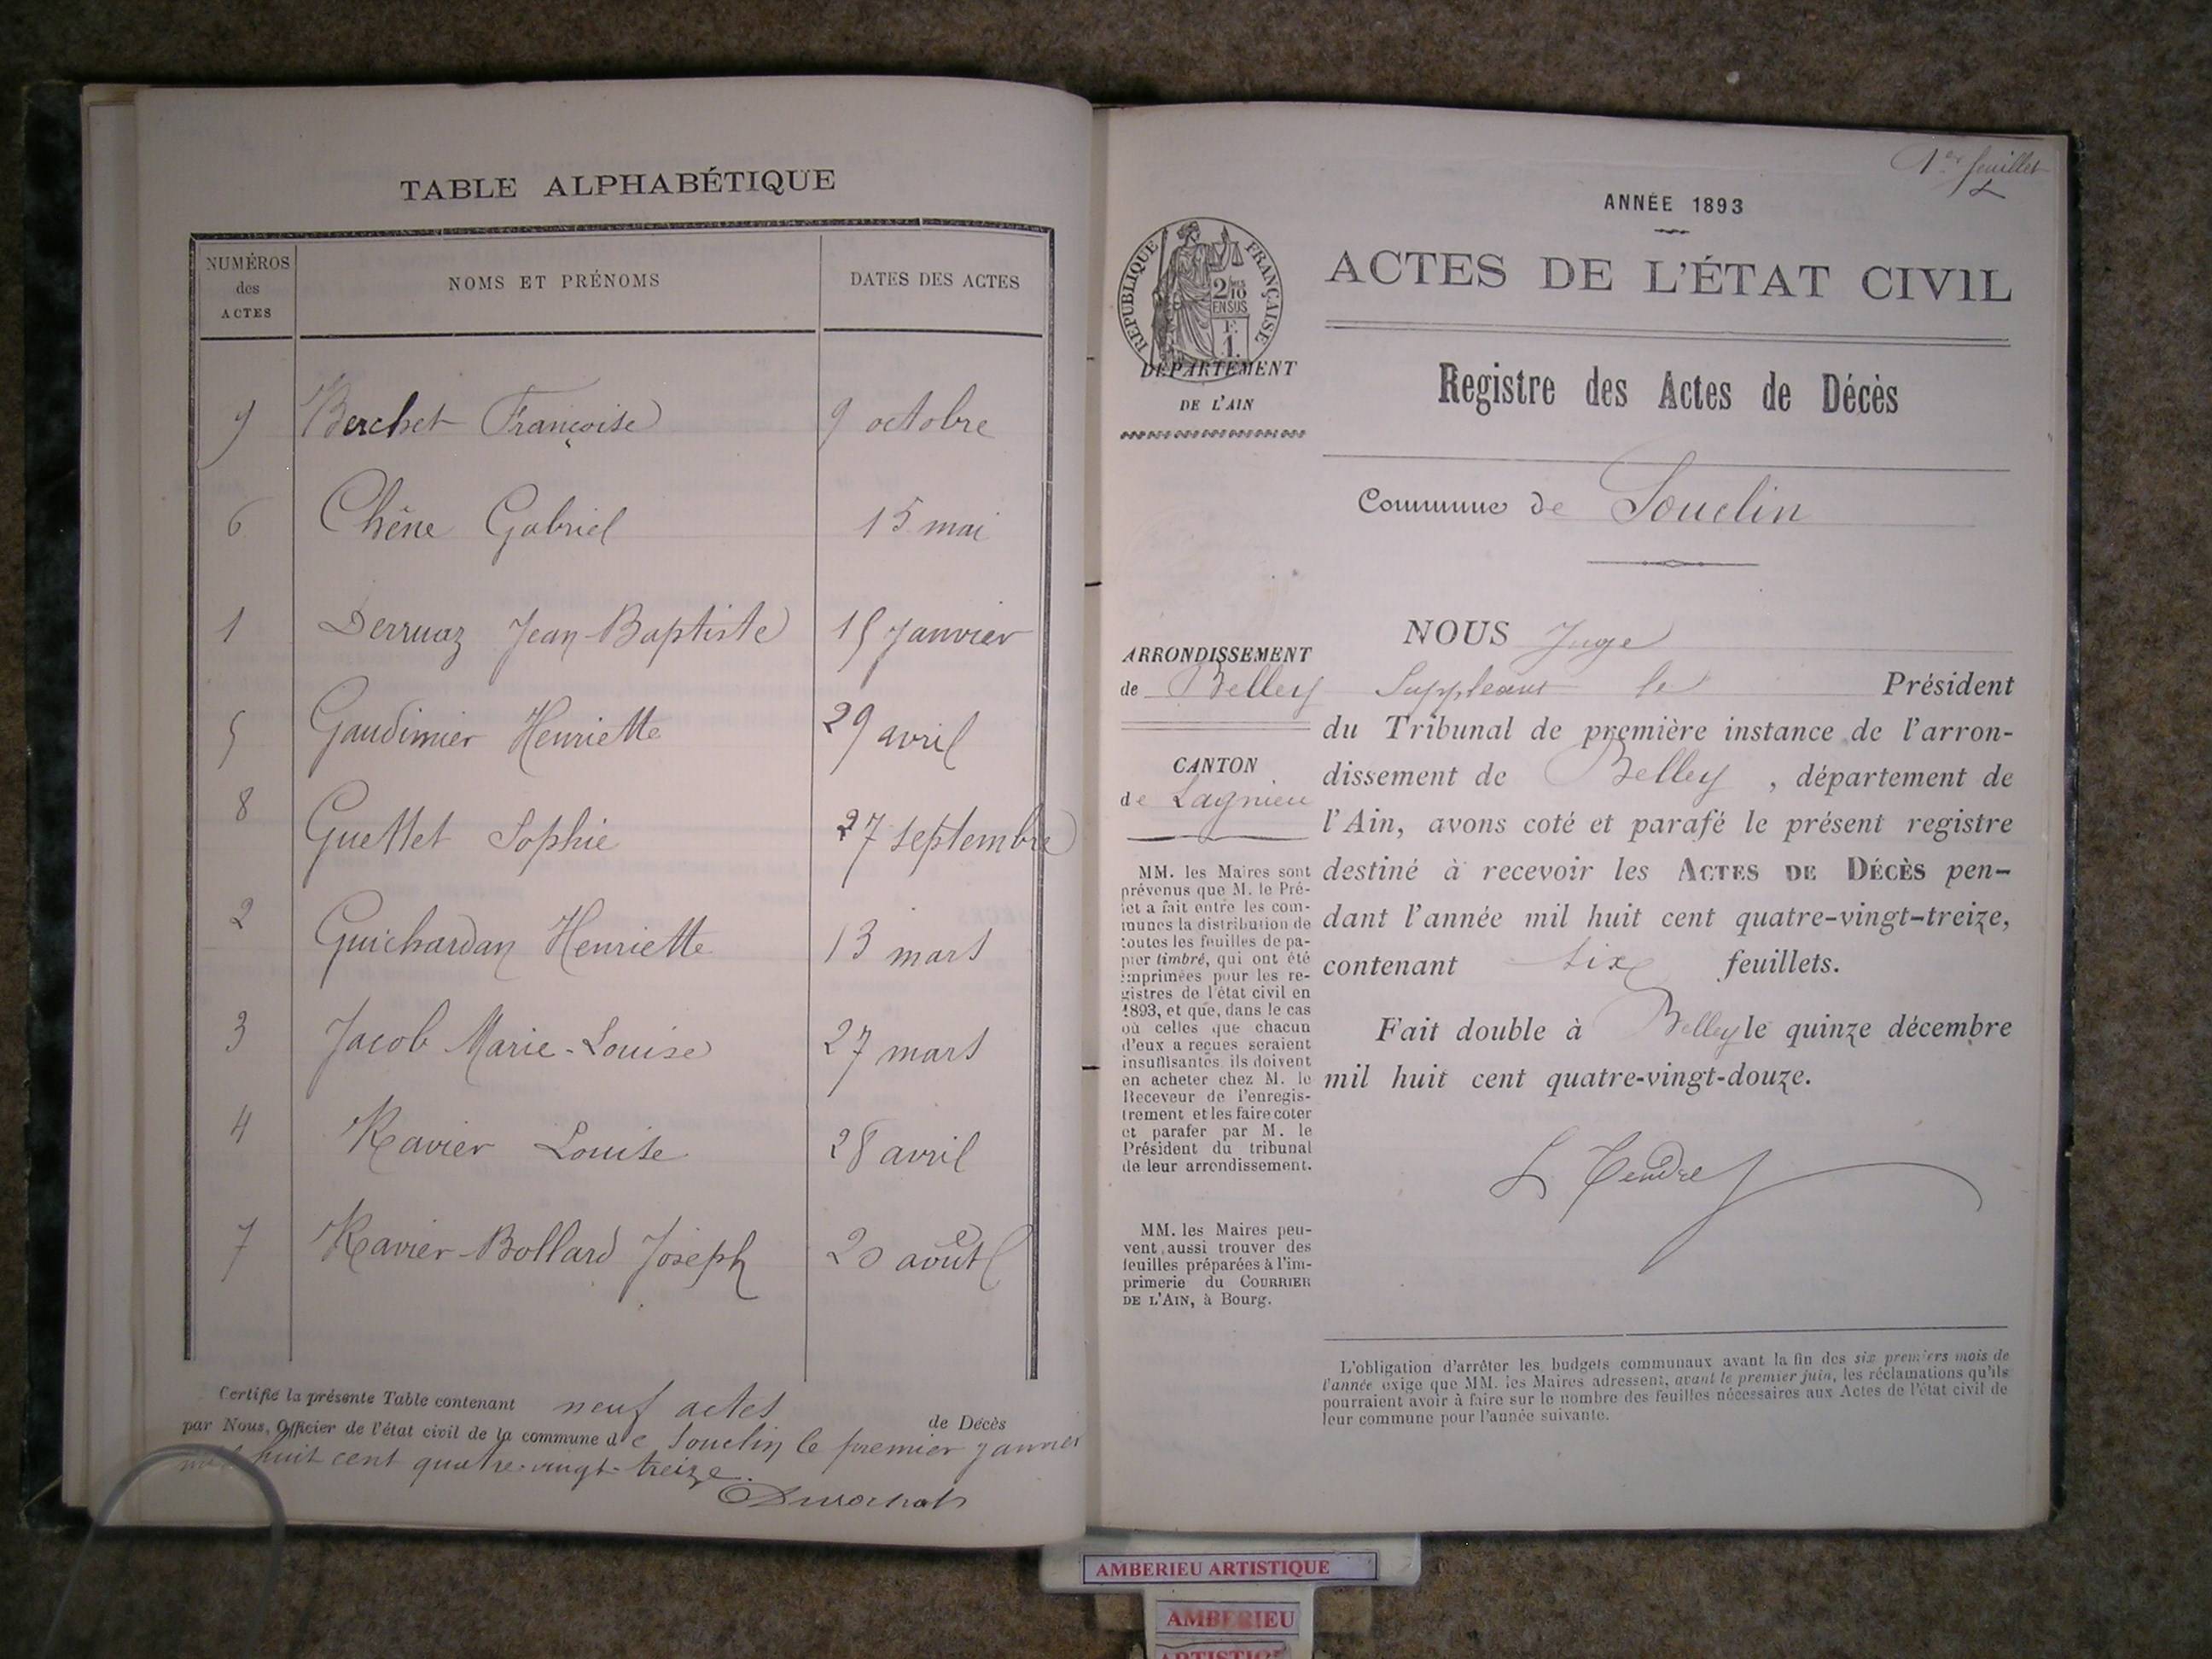 TABLE ALPHABÉTIQUE
NUMÉROS des ACTES NOMS ET PRÉNOMS DATES DES ACTES
9 Berchet Françoise 9 octobre
6 Chêne Gabriel 15 mai
1 Derruaz Jean-Baptiste 15 Janvier
5 Gaudimier Henriette 29 avril
8 Guettet Sophie 27 septembre
2 Guichardan Henriette 13 mars
3 Jacob Marie-Louise 27 mars
4 Ravier Louise 28 avril
7 Ravier-Bollard Joseph 20 août
Certifié la présente Table contenant neuf actes de Décès
par Nous, Officier de l'état civil de la commune de Souclin le premier janvier
mil huit cent quatre-vingt-treize.
1er feuillet
ANNÉE 1893
ACTES DE L'ÉTAT CIVIL
RÉPUBLIQUE FRANÇAISE
2/10
EN SUS
DÉPARTEMENT
DE L'AIN
Registre des Actes de Décès
Commune de Souclin
ARRONDISSEMENT
de Belley
CANTON
de Lagnieu
MM. les Maires sont
prévenus que M. le Pré-
fet a fait entre les com-
munes la distribution de
toutes les feuilles de pa-
pier timbré, qui ont été
imprimées pour les re-
gistres de l'état civil en
1893, et que, dans le cas
où celles que chacun
d'eux a reçues seraient
insuffisantes ils doivent
en acheter chez M. le
Receveur de l'enregis-
trement et les faire coter
et parafer par M. le
Président du tribunal
de leur arrondissement.
MM. les Maires peu-
vent aussi trouver des
feuilles préparées à l'im-
primerie du COURRIER
DE L'AIN, à Bourg.
NOUS Juge
Suppléant le Président
du Tribunal de première instance de l'arron-
dissement de Belley, département de
l'Ain, avons coté et parafé le présent registre
destiné à recevoir les ACTES DE DÉCÈS pen-
dant l'année mil huit cent quatre-vingt-treize,
contenant six feuillets.
Fait double à Belley le quinze décembre
mil huit cent quatre-vingt-douze.
L'obligation d'arrêter les budgets communaux avant la fin des six premiers mois de
l'année exige que MM. les Maires adressent, avant le premier juin, les réclamations qu'ils
pourraient avoir à faire sur le nombre des feuilles nécessaires aux Actes de l'état civil de
leur commune pour l'année suivante.
AMBERIEU ARTISTIQUE
AMBERIEU
ARTISTIQUE